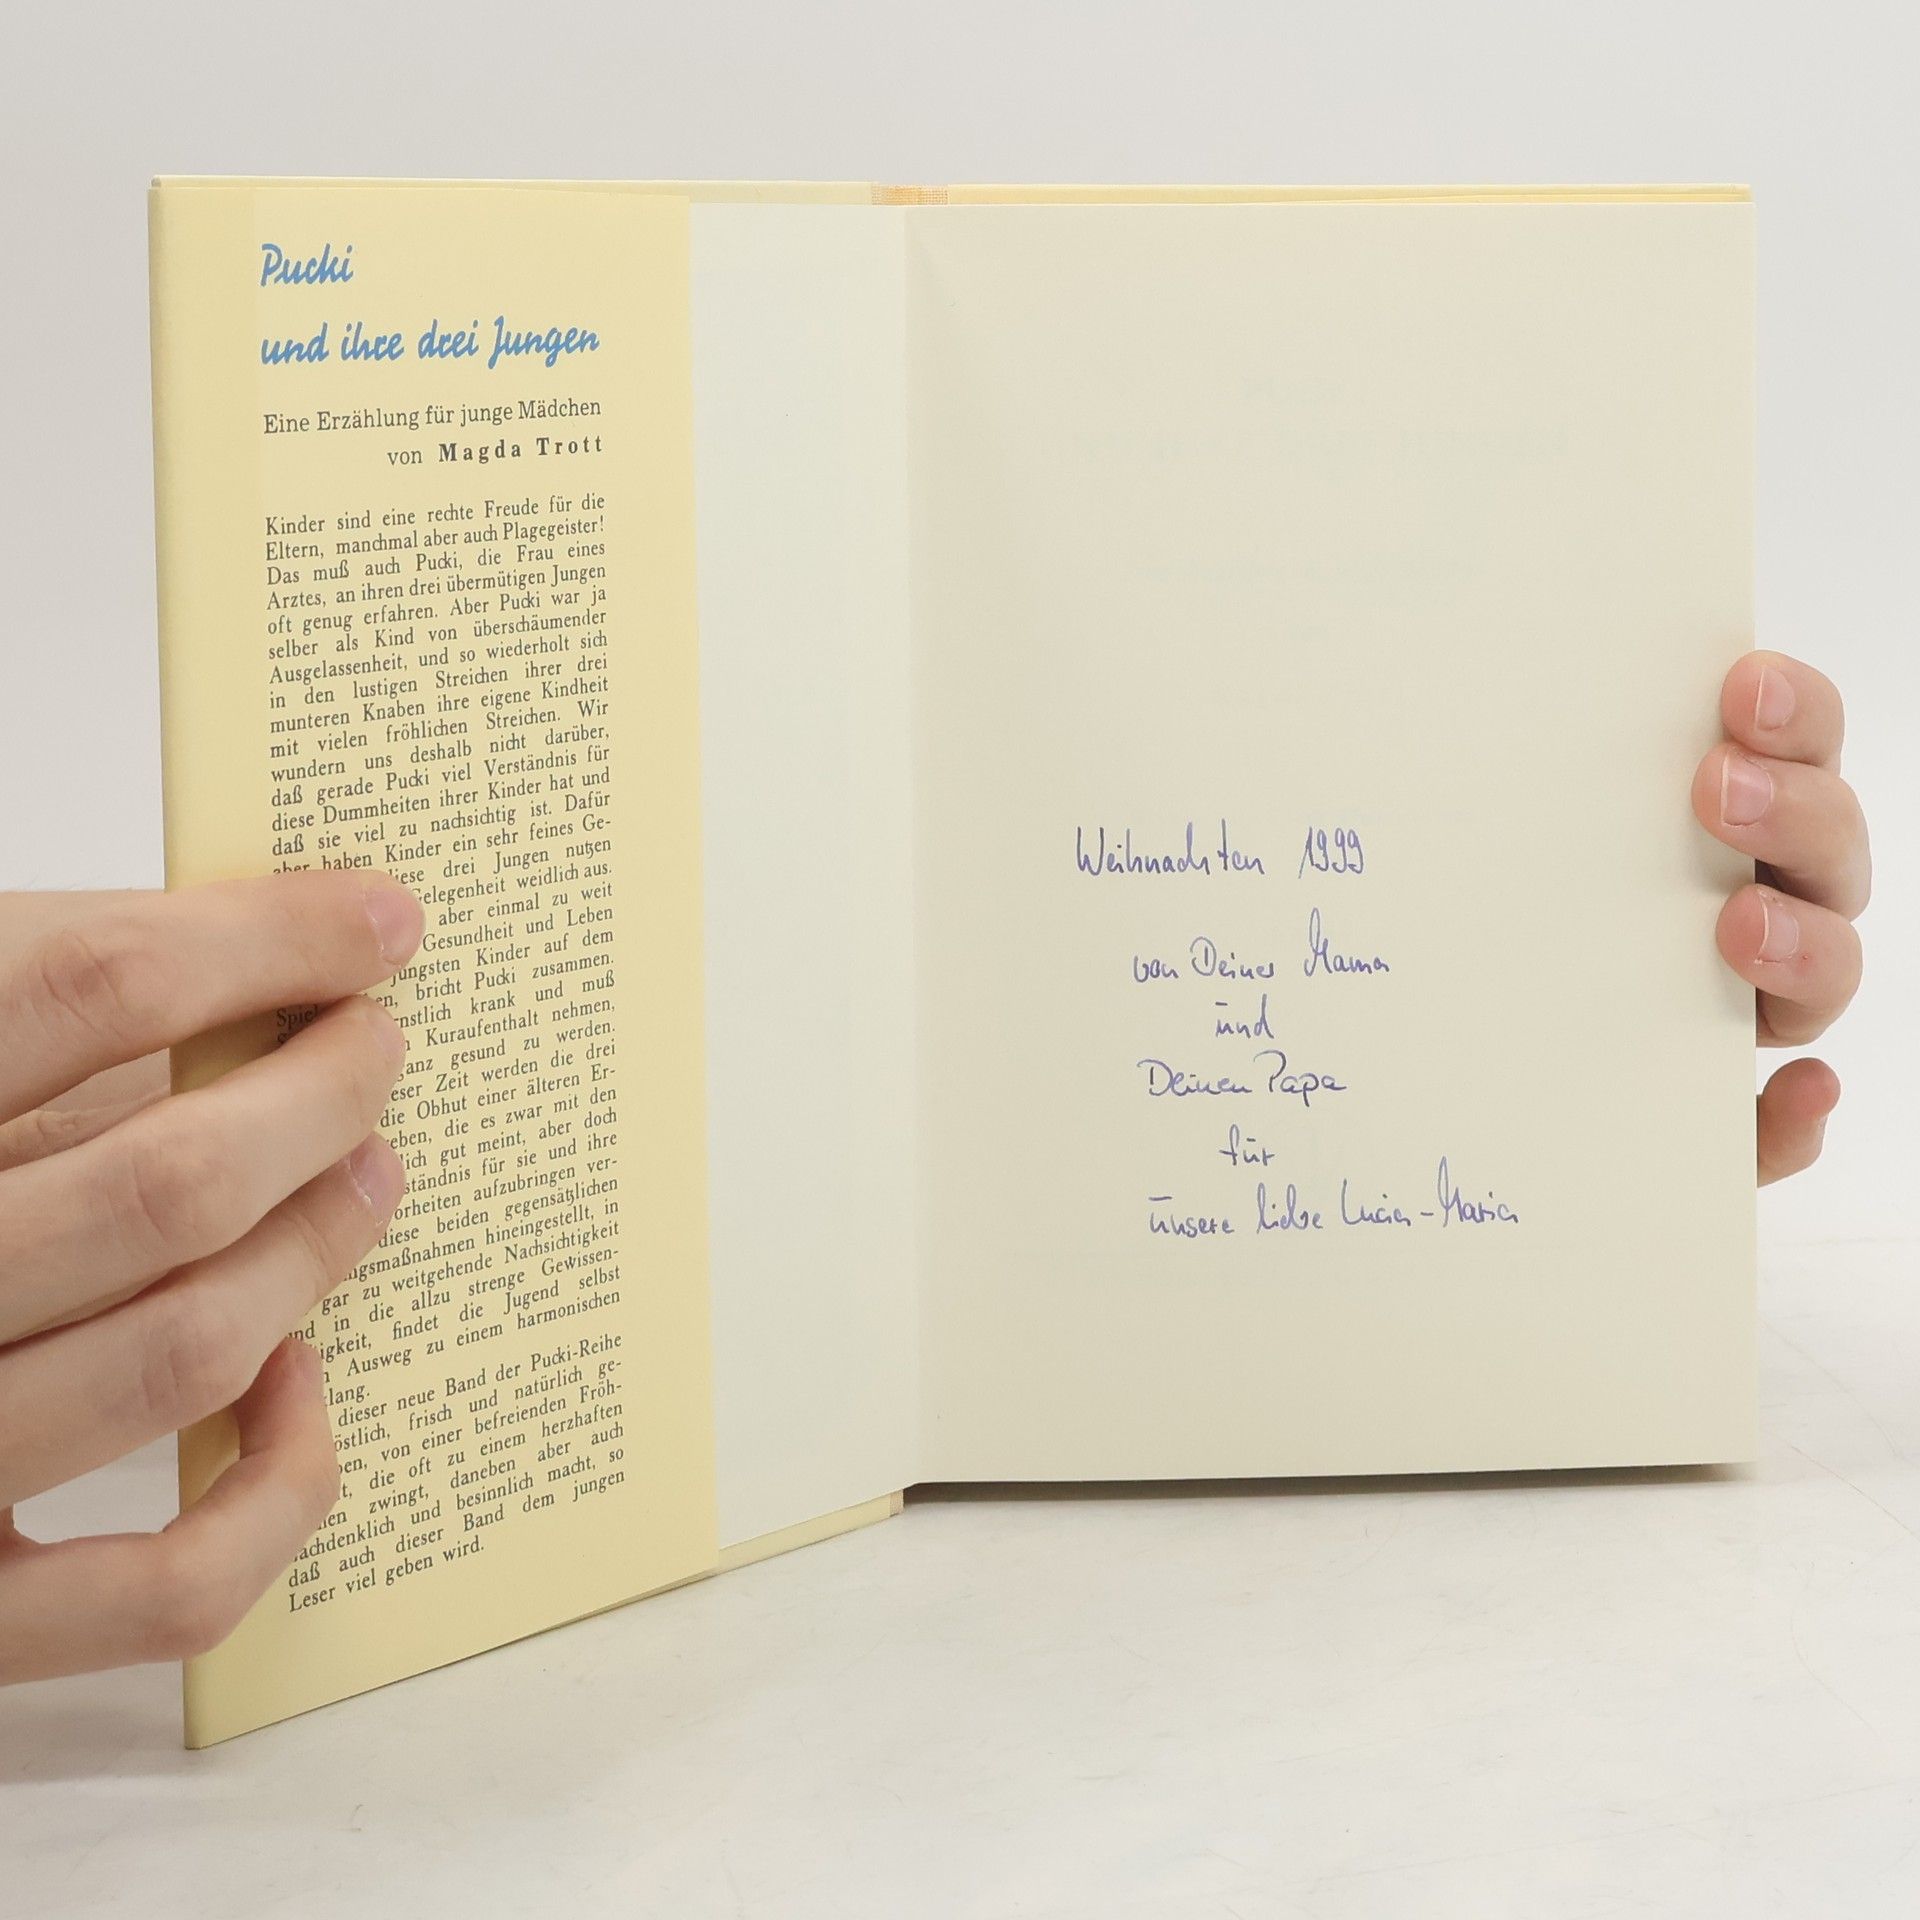 Pucki
und ihre drei Jungen
Eine Erzählung für junge Mädchen
von Magda Trott
Kinder sind eine rechte Freude für die
Eltern, manchmal aber auch Plagegeister!
Das muß auch Pucki, die Frau eines
Arztes, an ihren drei übermütigen Jungen
oft genug erfahren. Aber Pucki war ja
selber als Kind von überschäumender
Ausgelassenheit, und so wiederholt sich
in den lustigen Streichen ihrer drei
munteren Knaben ihre eigene Kindheit
mit vielen fröhlichen Streichen. Wir
wundern uns deshalb nicht darüber,
daß gerade Pucki viel Verständnis für
diese Dummheiten ihrer Kinder hat und
daß sie viel zu nachsichtig ist. Dafür
aber haben Kinder ein sehr feines Ge-
drei Jungen nutzen
Gelegenheit weidlich aus.
aber einmal zu weit
Gesundheit und Leben
jüngsten Kinder auf dem
bricht Pucki zusammen.
krank und muß
Kuraufenthalt nehmen,
ganz gesund zu werden.
Zeit werden die drei
die Obhut einer älteren Er-
die es zwar mit den
gut meint, aber doch
für sie und ihre
aufzubringen ver-
diese beiden gegensätzlichen
hineingestellt, in
gar zu weitgehende Nachsichtigkeit
und in die allzu strenge Gewissen-
tigkeit, findet die Jugend selbst
Ausweg zu einem harmonischen
klang.
dieser neue Band der Pucki-Reihe
köstlich, frisch und natürlich ge-
von einer befreienden Fröh-
die oft zu einem herzhaften
zwingt, daneben aber auch
nachdenklich und besinnlich macht, so
daß auch dieser Band dem jungen
Leser viel geben wird.
Weihnachten 1999
von Deiner Mama
und
Deinen Papa
für
unsere liebe Lucia-Maria